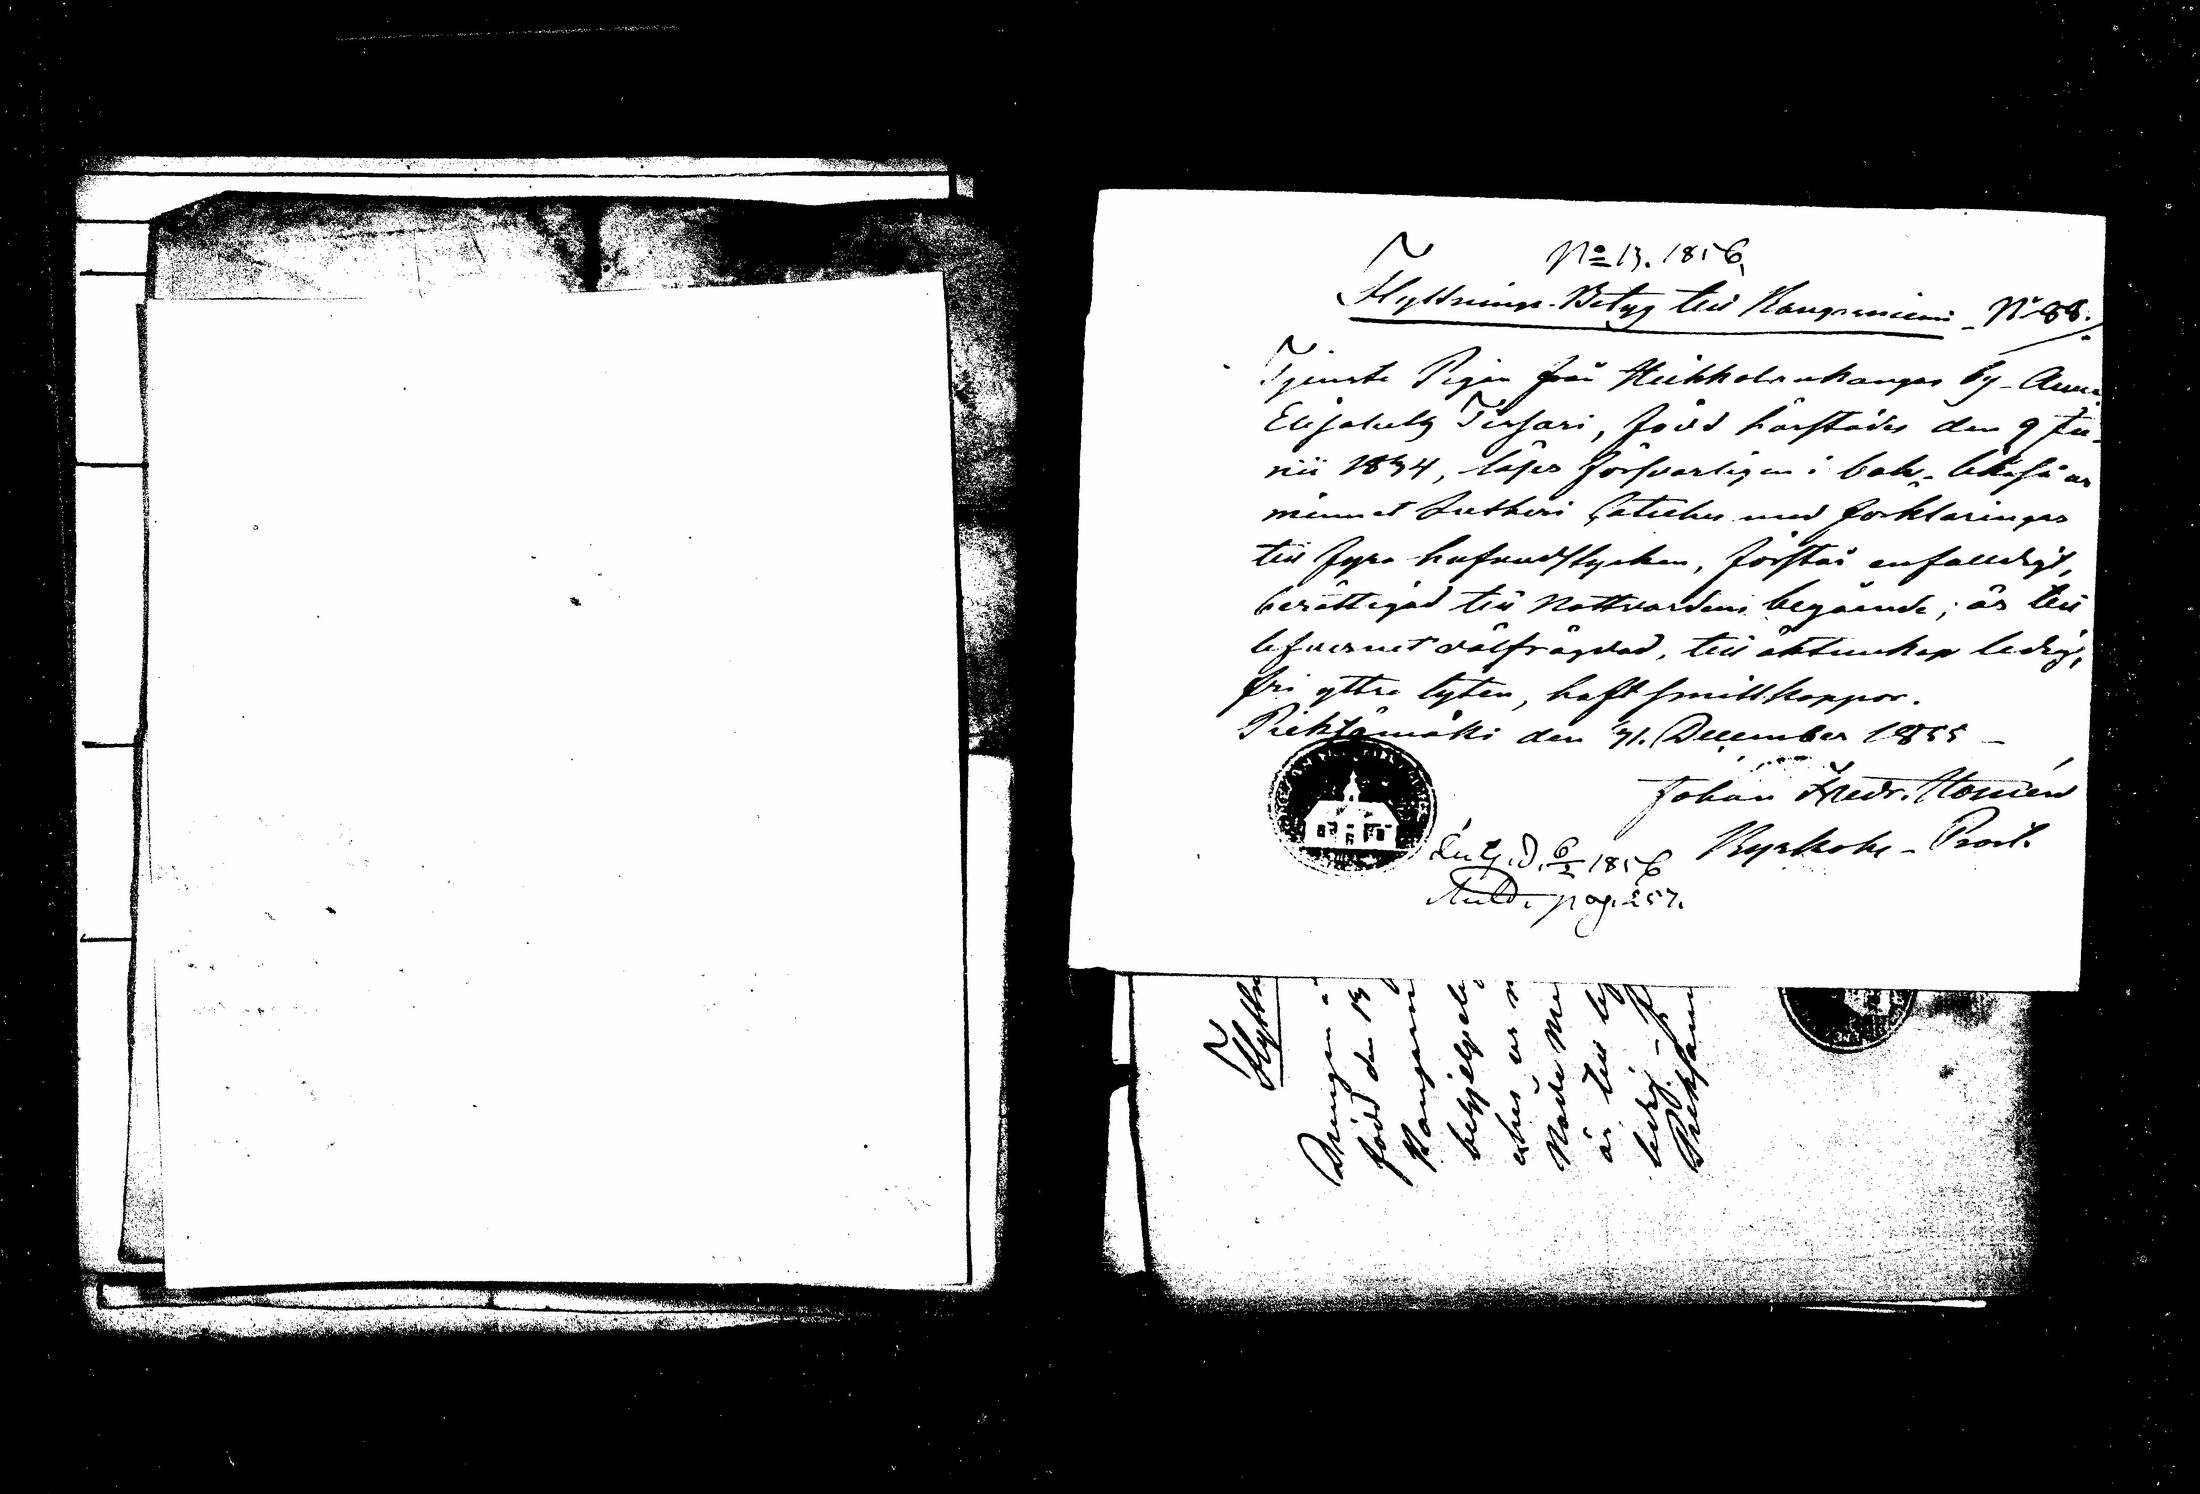 No 13. 1856.
Flyttnings-Betyg till Kangasniemi - No 88.
Tjenste Pigan från Heikkolankangas by - Anna
Elisabeth Tissari, född härstädes den 9 Ju-
nii 1834, läser försvarligen i bok, likaså ur
minnet Lutheri Cateches med förklaringar
till fyra hufvudstycken, förstår enfalldigt,
berättigad till Nattvardens begående; är till
lefvernet välfrägdad, till äktenskap ledig,
fri yttre lyten, haft smittkoppor.
Pieksämäki den 31. December 1855 -
Johan Fredr.
Kyrkohe - Prost.
d. 6/2 1856
pag. 257.
Flyttn
Drengen
född den 13
Kangasni
ledig
Pieksäm